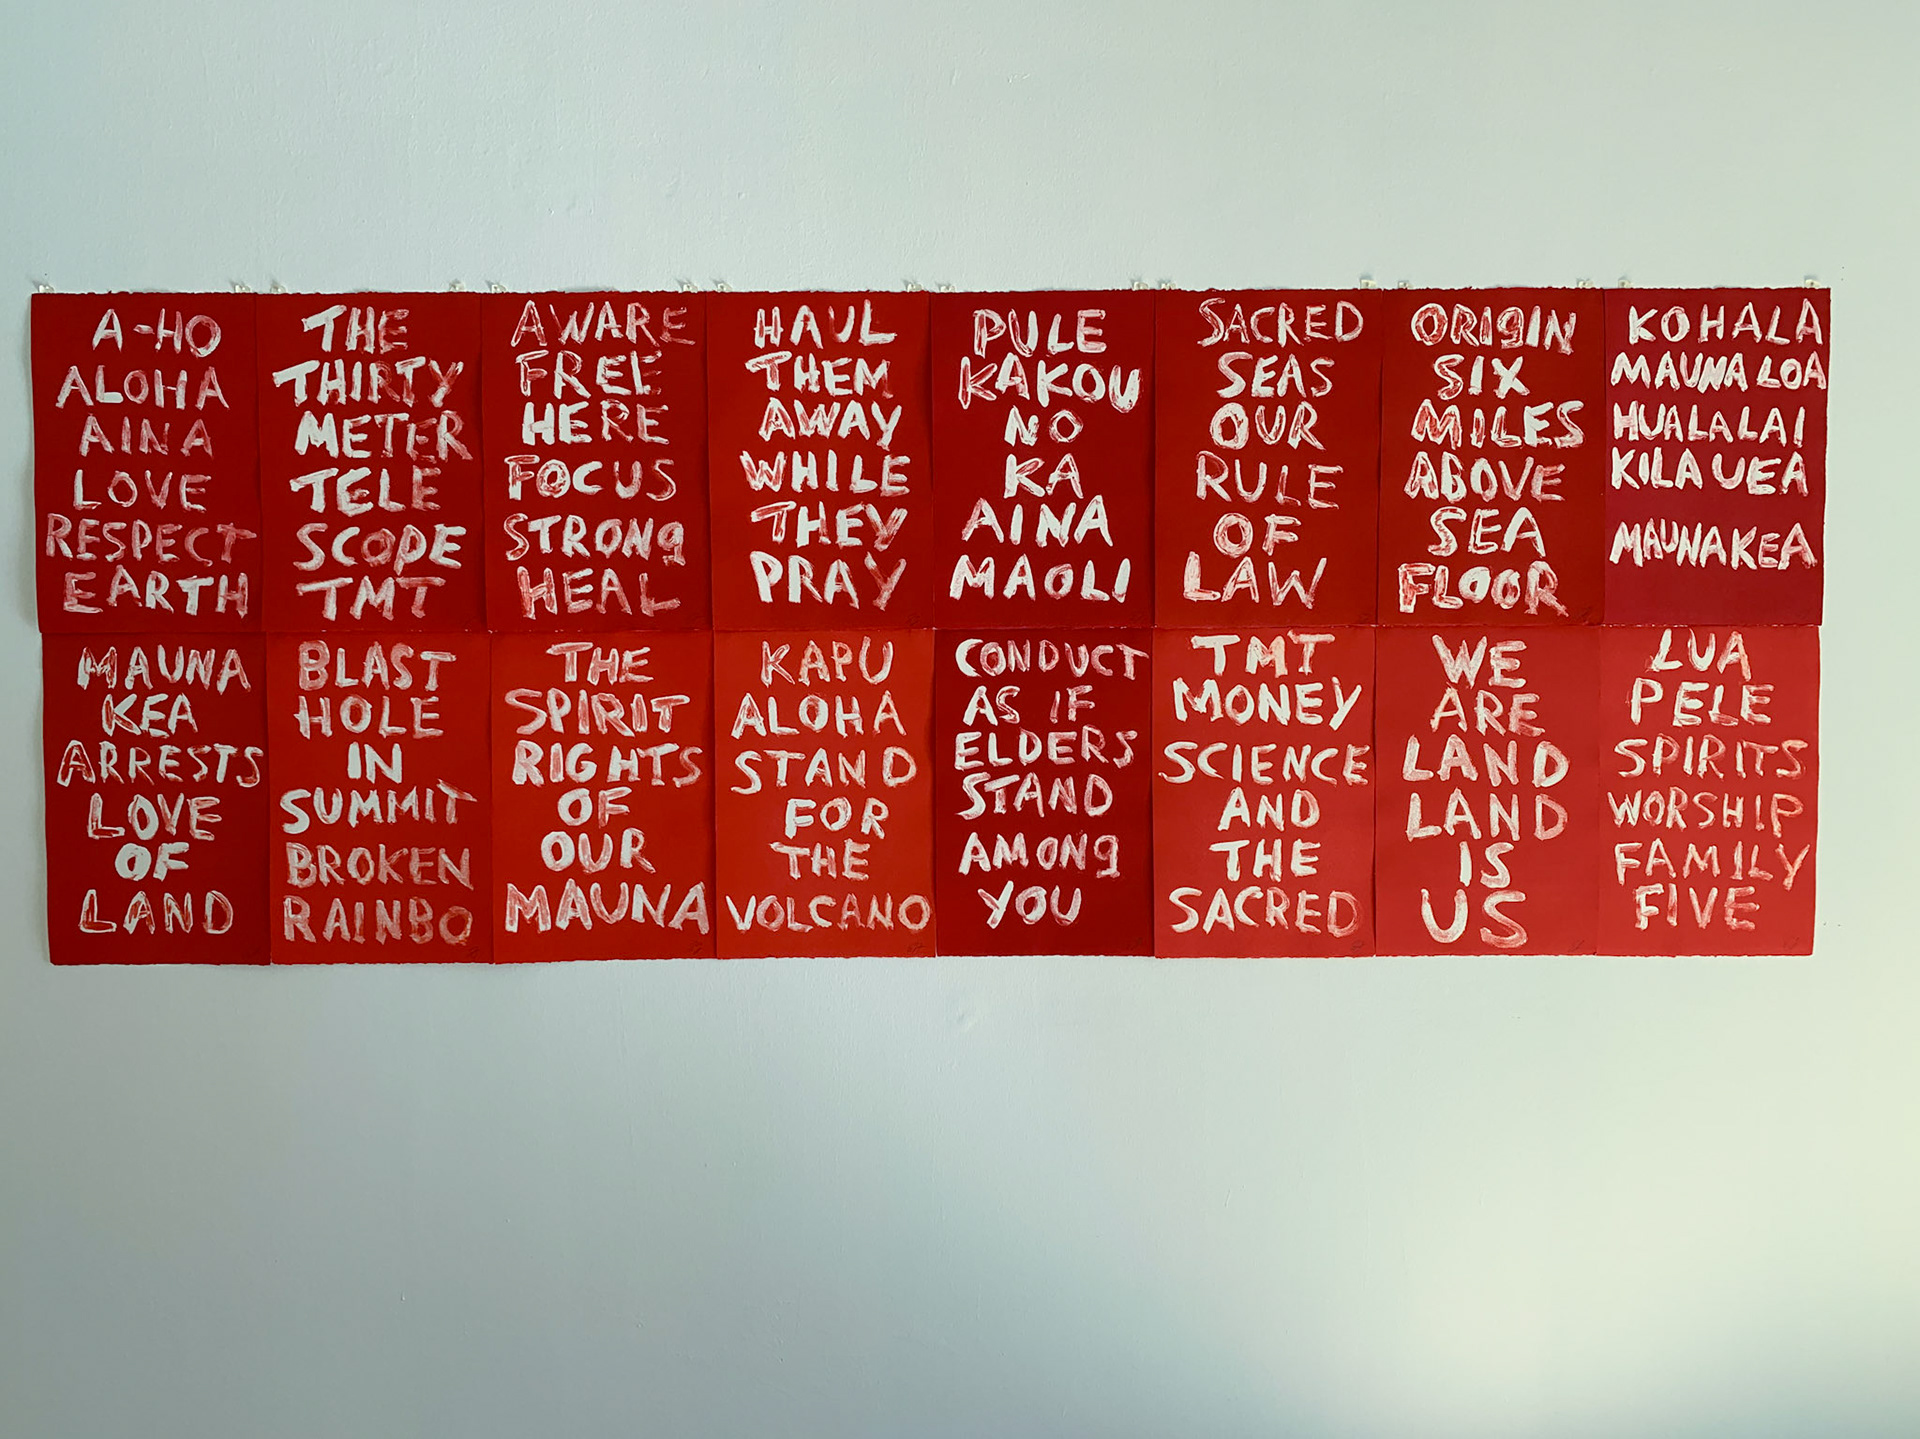 A-HO
ALOHA
AINA
LOVE
RESPECT
EARTH
THE
THIRTY
METER
TELE
SCOPE
TMT
AWARE
FREE
HERE
FOCUS
STRONG
HEAL
HAUL
THEM
AWAY
WHILE
THEY
PRAY
PULE
KAKOU
NO
KA
AINA
MAOLI
SACRED
SEAS
OUR
RULE
OF
LAW
ORIGIN
SIX
MILES
ABOVE
SEA
FLOOR
KOHALA
MAUNA LOA
HUALALAI
KILAUEA
MAUNAKEA
MAUNA
KEA
ARRESTS
LOVE
OF
LAND
BLAST
HOLE
IN
SUMMIT
BROKEN
RAINBO
THE
SPIRIT
RIGHTS
OF
OUR
MAUNA
KAPU
ALOHA
STAND
FOR
THE
VOLCANO
CONDUCT
AS IF
ELDERS
STAND
AMONG
YOU
TMT
MONEY
SCIENCE
AND
THE
SACRED
WE
ARE
LAND
LAND
IS
US
LUA
PELE
SPIRITS
WORSHIP
FAMILY
FIVE